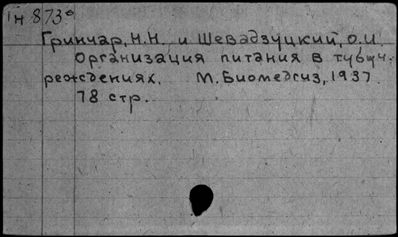 1н 873°
Гринчар, Н.Н. и Шевадзуцкий, О.И.
Организация питания в тубуч-
реждениях. М. Биомедгиз, 1937
78 стр.